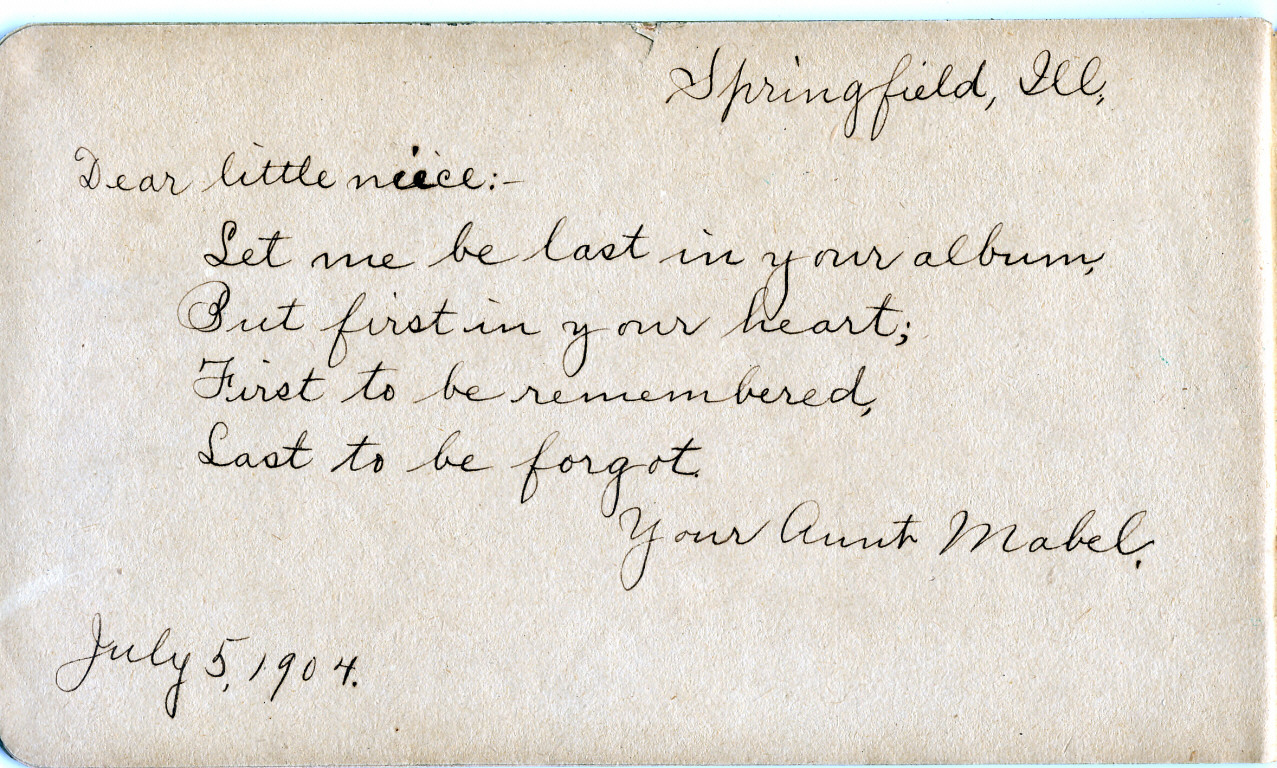 Springfield, Ill.,
Dear little niece:-
Let me be last in your album,
But first in your heart;
First to be remembered,
Last to be forgot.
Your Aunt Mabel.
July 5, 1904.